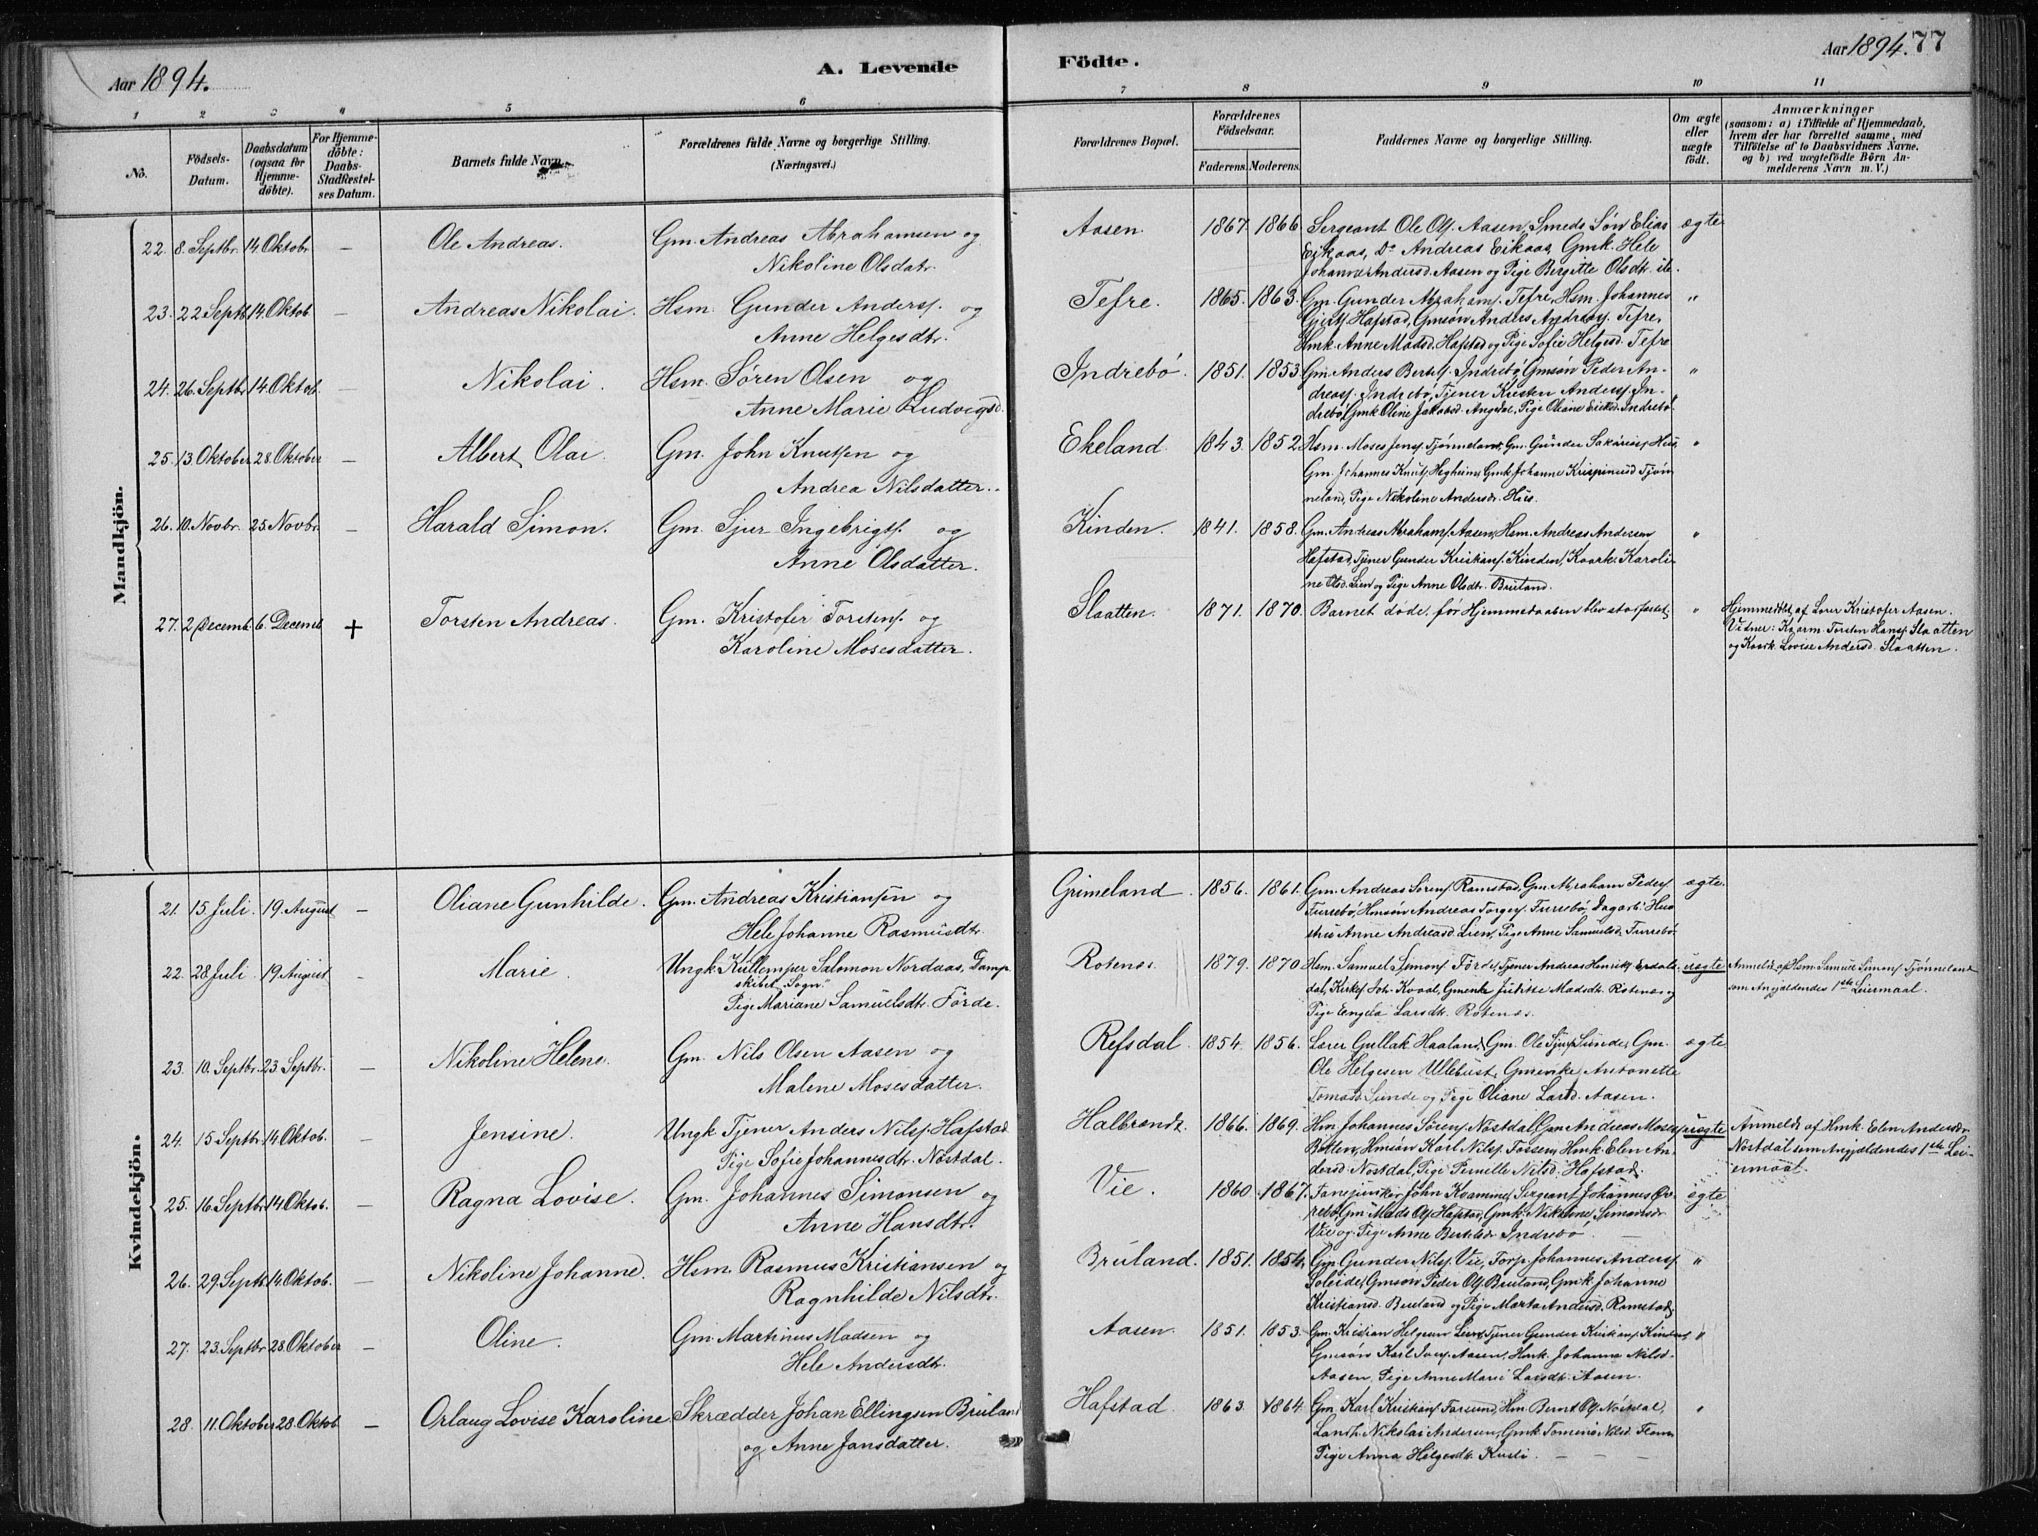 Aar 1894.
A. Levende
Födte.
Aar 1894. 77
1 2 3 4 5 6
7 8 9 10 11
No.
Födsels-Datum.
Daabsdatum (ogsaa for Hjemme-döbte).
For Hjemme-döbte: Daabs-Stadfæstel-ses Datum.
Barnets fulde Navn.
Forældrenes fulde Navne og borgerlige Stilling.
(Næringsvei.)
Forældrenes Bopæl.
Forældrenes Födselsaar.
Faderens. Moderens.
Faddernes Navne og borgerlige Stilling.
Om ægte eller uægte födt.
Anmærkninger
(saasom: a) i Tilfælde af Hjemmedaab,
hvem der har forrettet samme, med
Tilföielse af to Daabsvidners Navne.
og b) ved uægtefödte Börn An-
melderens Navn m. V.)
Mandkjön.
22. 8. Septbr. 14. Oktobr. — Ole Andreas. Gm. Andreas Abrahamsen og
Nikoline Olsdatr.
Aasen 1867. 1866. Sergeant Ole Ols. Aasen, Smeds Søn Elias ægte
Eikaas, Do Andreas Eikaas, Gmk. Hele
Johanne Andersd. Aasen og Pige Bergitte Olsdtr. ile
23. 22 Septb. 14. Oktob. — Andreas Nikolai. Hsm. Gunder Anderss. og
Anne Helgesdtr.
Tefre. 1865. 1863. Gm. Gunder Abrahams. Tefre, Hsm. Johannes "
Gjerts. Hafstad, Gmsøn Anders Andreass. Tefre,
Hmk. Anne Madsd. Hafstad og Pige Sofie Helgesd. Tefre
24. 26. Septbr. 14. Oktob. — Nikolai. Hsm. Søren Olsen og
Anne Marie Ludvigsd.
Indrebö. 1851. 1853. Gm. Anders Bertels. Indrebö, Gmsøn Peder An- "
dreass. Indrebö, Tjener Kristen Anderss. In-
drebö, Gmk. Oline Jakobsd. Angedal, Pige Oliane Eriksd. Indrebö
25. 13. Oktober 28. Oktober — Albert Olai. Gm. John Knutsen og
Andrea Nilsdatter.
Ekeland 1843. 1852. Hsm. Moses Jens. Tjønneland, Gm. Gunder Sakarias. Hus, "
Gm. Johannes Knuts. Hegheim, Gmk. Johanne Krispinusd Tjøn-
neland, Pige Nikoline Andersdr. Hus.
26. 10. Novbr. 25 Novbr. — Harald Simon. Gm. Sjur Ingebrigts. og
Anne Olsdatter.
Kinden. 1841. 1858. Gm. Andreas Abrahams. Aasen, Hsm. Andreas Andersen "
Hafstad, Tjener Gunder Kristians. Kinden, Kaark. Karoli-
ne Olsd. Lien og Pige Anne Olsdtr. Bruland.
27. 2 Decemb. 6. Decemb. + Torsten Andreas. Gm. Kristofer Torstens. og
Karoline Mosesdatter.
Slaatten. 1871. 1870. Barnet døde, før Hjemmedaaben blev stadfæstet. "
Hjemmedöbt af Lærer Kristofer Aasen.
Vidner: Kaarm. Torsten Hans. Slaatten
og Kaark. Lovise Andersd. Slaatten.
Kvindekjön.
21. 15. Juli. 19. August — Oliane Gunhilde. Gm. Andreas Kristiansen og
Hele Johanne Rasmusdtr.
Grimeland 1856. 1861. Gm. Andreas Sørens. Ramstad, Gm. Abraham Peders. ægte.
Furrebø, Hmsøn Andreas Torgers. Furrebø, Dagarb. Hu-
stru Anne Andreasd. Lien, Pige Anne Samuelsd. Furrebø
22. 28. Juli 19. August — Marie. Ungk. Kullemper Salomon Nordaas, Damp-
skibet "Sogn"
Pige Mariane Samuelsdt. Förde.
Rotenes. 1879. 1870 Hsm. Samuel Simons. Förde, Tjener Andreas Henriks. Erdal uægte
dal, Kirkes. Joh. Kvaal, Gmenke Juditte Madsdt. Rotenes og
Pige Engda Larsdt. Rotenes.
Anmeldt af Hsm. Samuel Simons. Tjønneland
som Angjældendes 1ste Leiermaal.
23. 10. Septbr. 23 Septbr. — Nikoline Helene. Gm. Nils Olsen Aasen og
Malene Mosesdatter.
Refsdal. 1854. 1856. Lærer Gullak Haaland, Gm. Ole Sjurs. Sunde, Gm. ægte
Ole Helgesen Ullebust, Gmenke Antonette
Tomasd. Sunde og Pige Oliane Larsd. Aasen.
24. 15 Septbr. 14 Oktob. — Jensine. Ungk. Tjener Anders Nils. Hafstad
Pige Sofie Johannesdt. Nøstdal.
Halbrendt. 1866. 1869. Hm. Johannes Sørens. Nøstdal, Gm. Andreas Moses. uægte
Botten, Hmsøn Karl Nils. Farsen, Hmk. Elen An-
dersd. Nøstdal, Pige Pernille Nilsd. Hafstad.
Anmeldt af Hmk. Elen Andersdtr.
Nøstdal som Angjældendes 1ste Lei-
ermaal.
25. 16. Septbr. 14. Oktob. — Ragna Lovise. Gm. Johannes Simonsen og
Anne Hansdtr.
Vie. 1860 1867. Fanejunker John Kvamme, Sergeant Johannes Ov- ægte
rebö, Gm. Mads Ols. Hafstad, Gmk. Nikoline Simonsdr
Vie og Pige Anne Bertelsd. Indrebö
26. 29. Septb. 14. Oktob. — Nikoline Johanne. Hsm. Rasmus Kristiansen og
Ragnhilde Nilsdtr.
Bruland. 1851. 1854. Gm. Gunder Nils. Vie, Forp. Johannes Anderss. "
Soleide, Gmsøn Peder Ols. Bruland, Gmk. Johanne
Kristiansd. Bruland og Pige Marta Andersd. Ramstad
27. 23. Septbr. 28. Oktober — Oline. Gm. Martinus Madsen og
Hele Andersdt.
Aasen. 1851. 1853. Gm. Kristian Helgesen Lien, Tjener Gunder Kristians. Kinden, "
Gmsøn Karl Ivers. Aasen, Hmk. Johanna Nilsd.
Aasen, Pige Anne Marie Larsdt. Aasen.
28. 11. Oktober 28. Oktob. — Orlaug Lovise Karoline. Skrædder Johan Ellingsen Bruland
og Anne Jansdatter.
Hafstad. 1863. 1864. Gm. Karl Kristians. Farsund, Hm. Bernt Ols. Nøstdal, "
Landh. Nikolai Andersen, Gmk. Tomine Nilsd. Flaam
Pige Anna Helgesdt. Kusli.